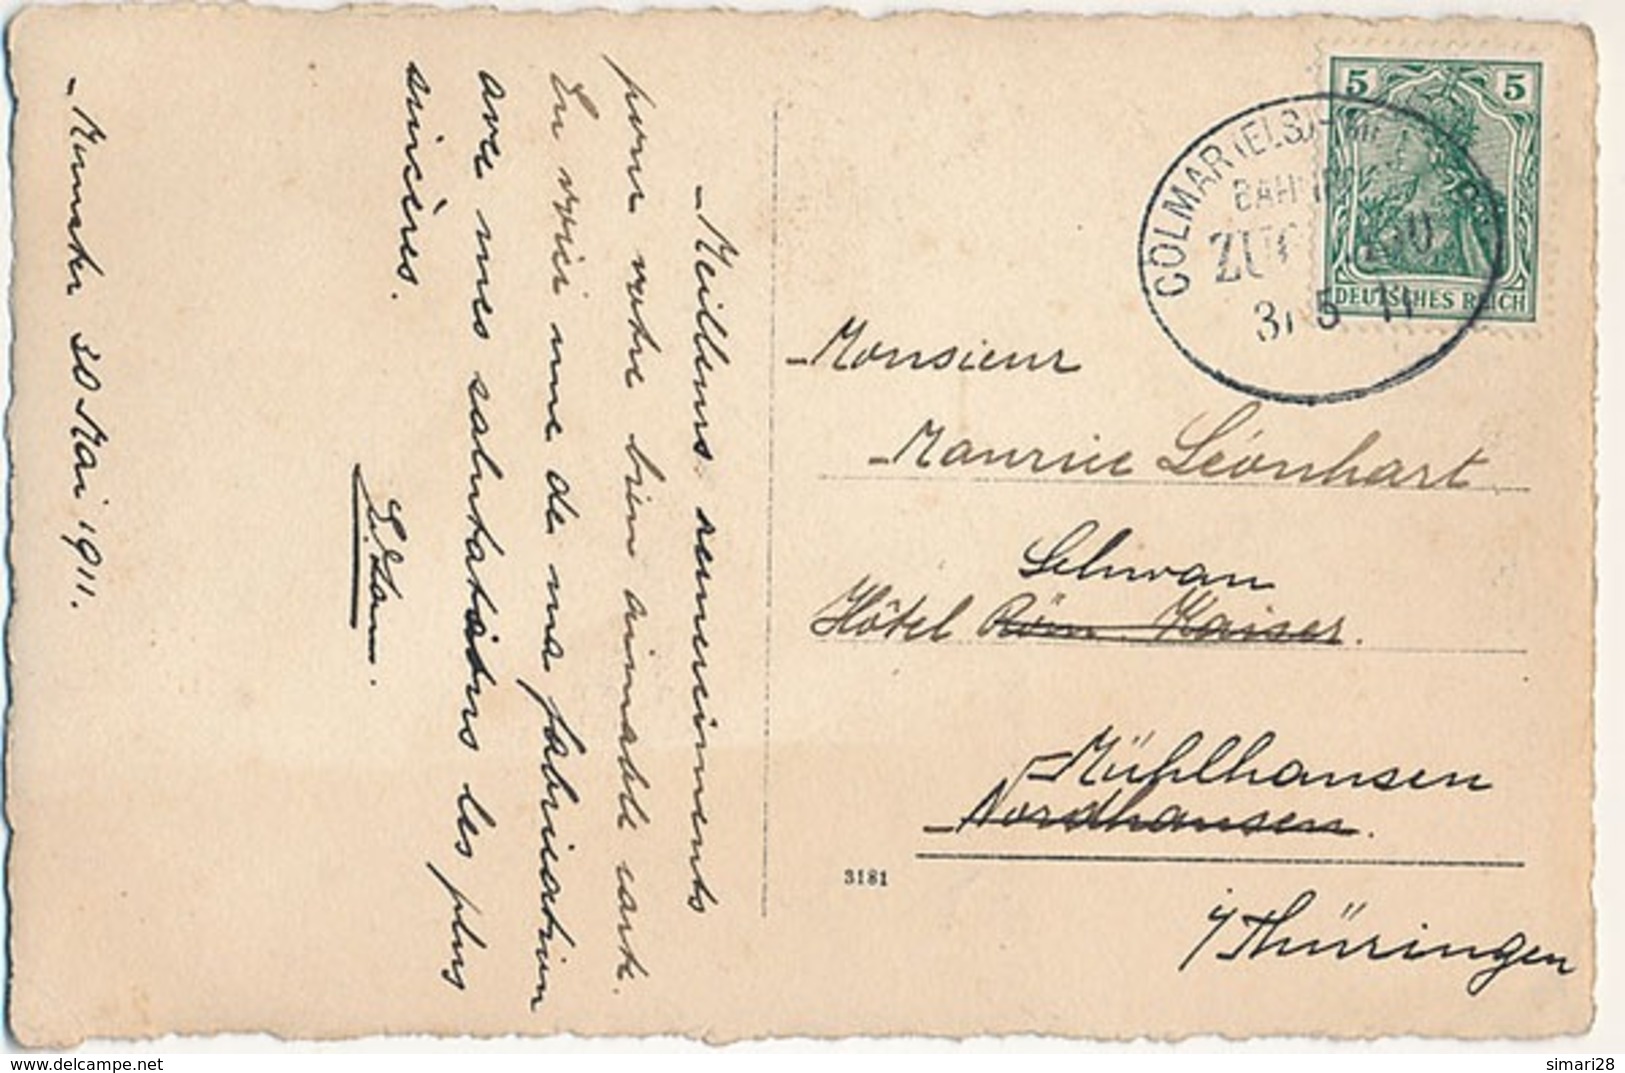 Meilleurs remerciments
pour votre bien aimable carte.
En voici une de ma fabrication
avec mes salutations les plus
sincères.
Munster 30 Mai 1911.
5 5
DEUTSCHES REICH
COLMAR (ELS)
BAHNPOST
ZUG
5 11
Monsieur
Maurice Léonhart
Schwan
Hôtel Röm. Kaiser.
Mühlhausen
Nordhausen.
i/Thüringen
3181
delcampe.net
simari28